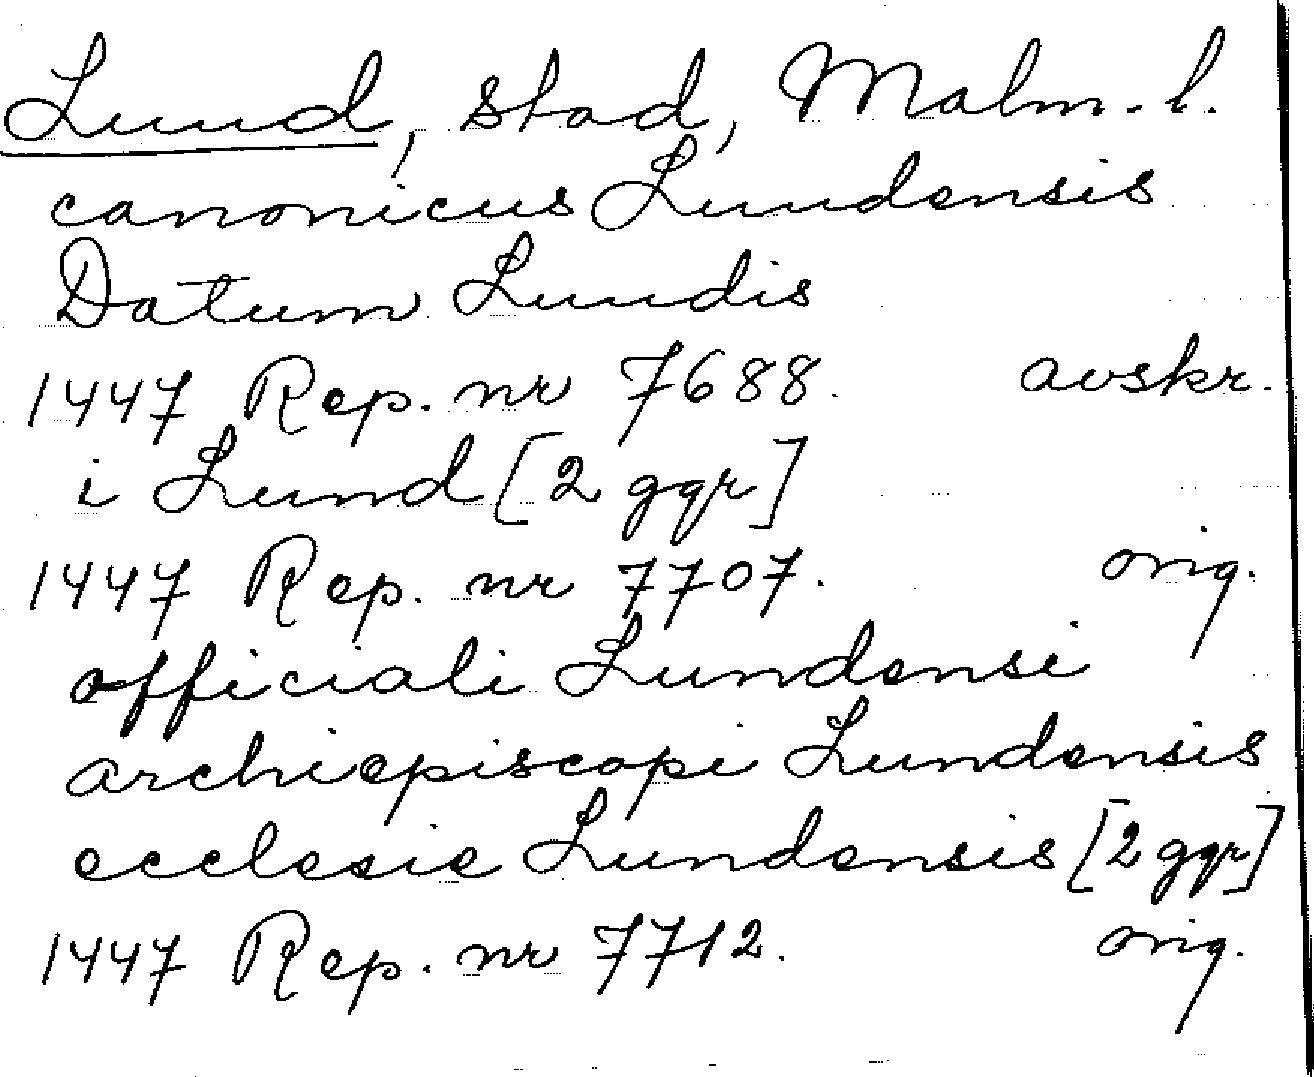 Lund, stad, Malm. l.
canonicus Lundensis
Datum Lundis
1447 Rep. nr 7688. avskr.
i Lund [2 ggr]
1447 Rep. nr 7707. orig.
officiali Lundensi
archiepiscopi Lundensis
ecclesie Lundensis [2 ggr]
1447 Rep. nr 7712. orig.